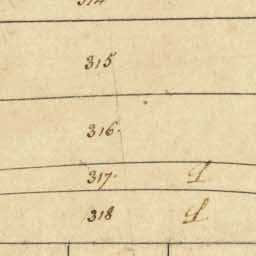 314
315
316.
317.
318